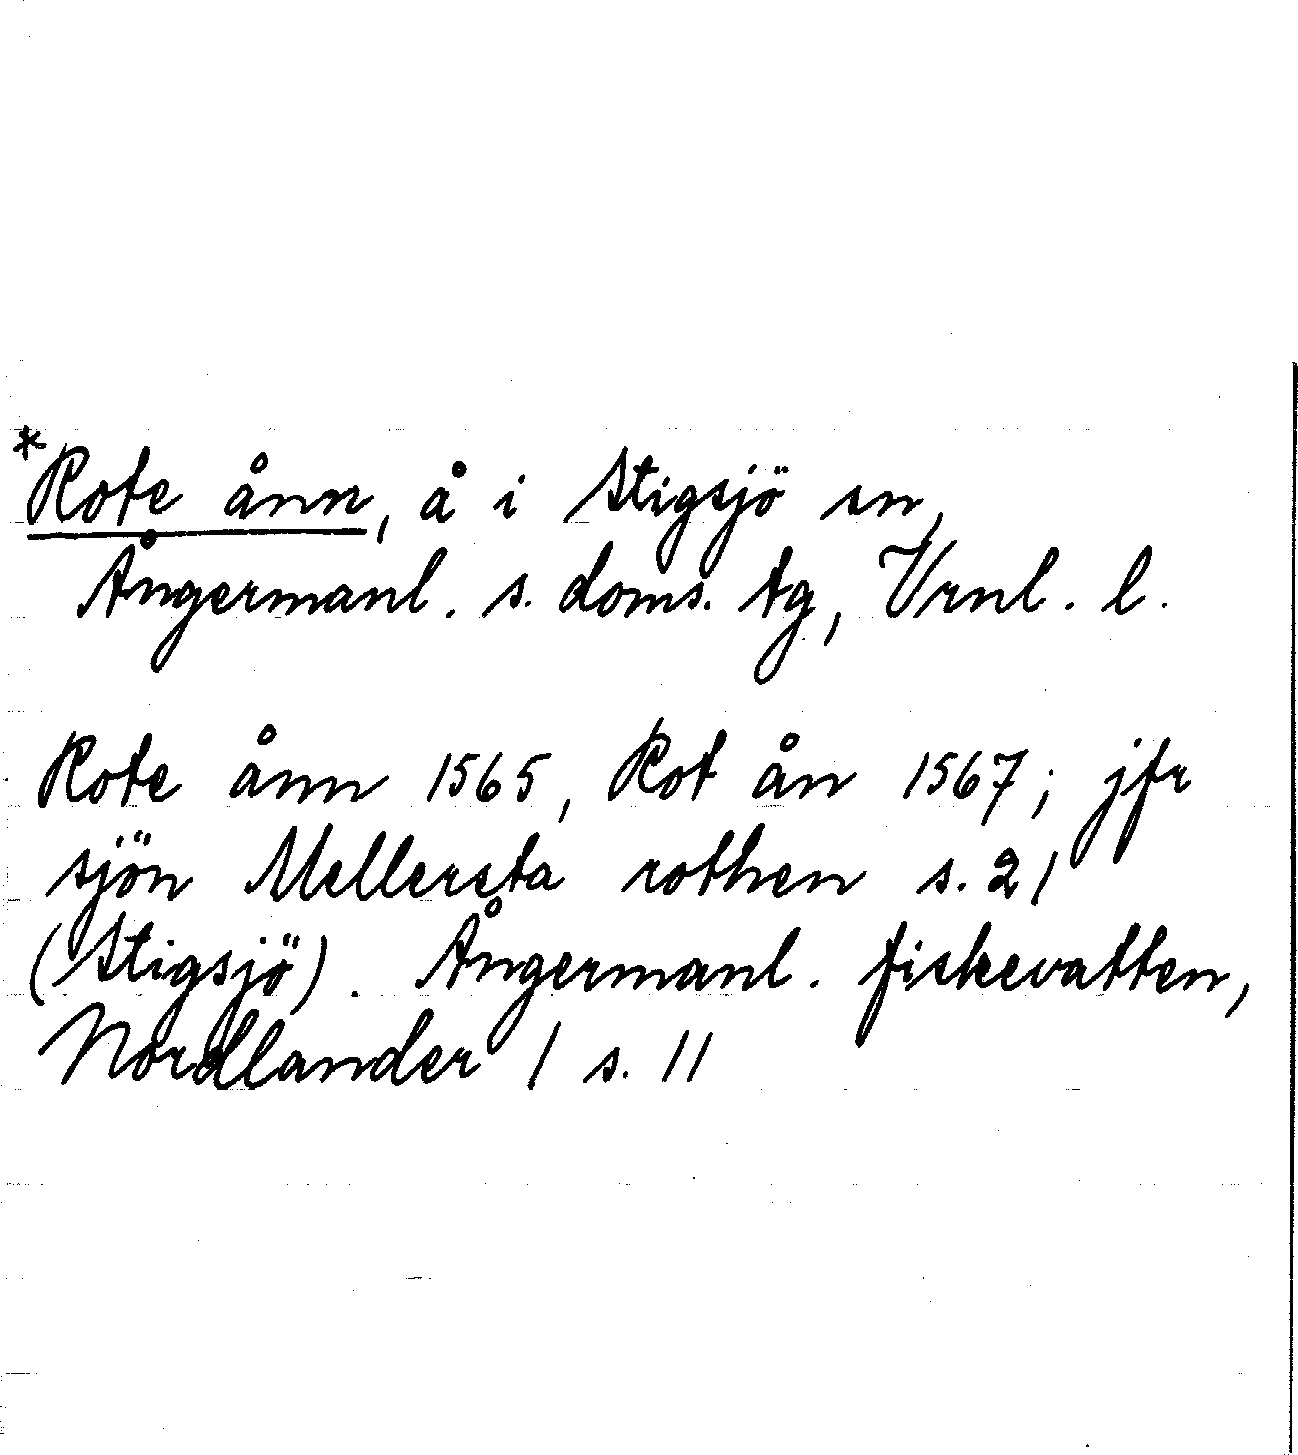 *Rote ånn, å i Stigsjö sn,
Ångermanl. s. doms. tg, Vrnl. l.
Rote ånn 1565, Rot ån 1567; jfr
sjön Mellersta rothen s. 21
(Stigsjö). Ångermanl. fiskevatten,
Nordlander 1 s. 11